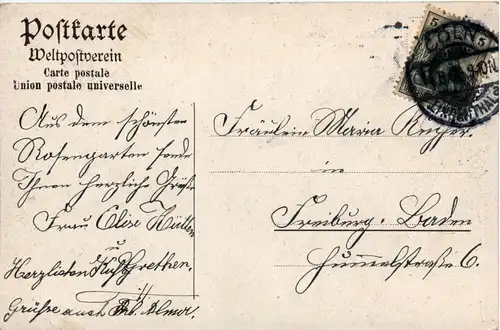 Postkarte
Weltpostverein
Carte postale
Union postale universelle
Aus dem schönsten
Rosengarten sende
Ihnen herzliche Grüße
Frau Elise Hütten
u
Gretchen.
Herzlichsten Kuß
Grüße auch
5
5
CÖLN
Fräulein Maria
in
Freiburg. Baden
Hummelstraße 6.